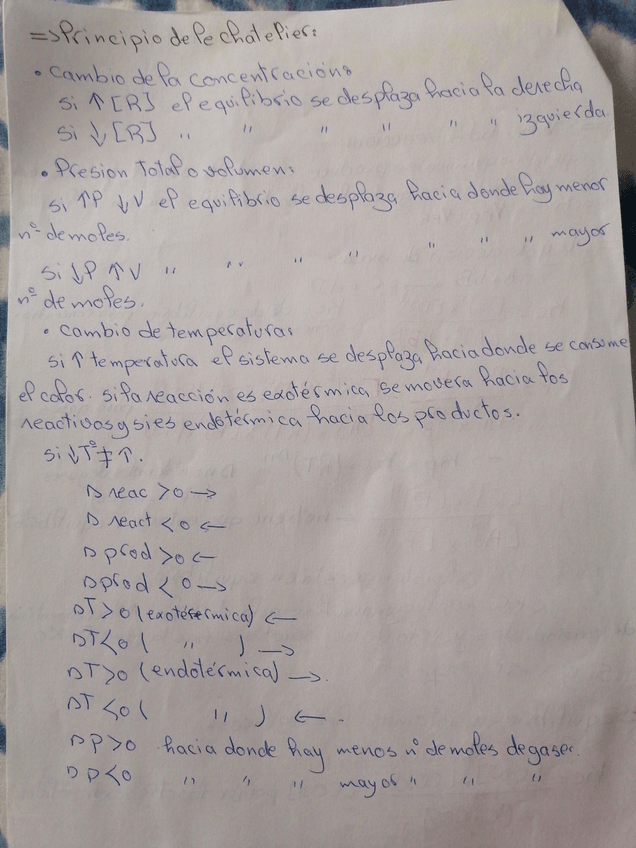 => Principio de le chatelier:
• Cambio de la concentración:
si ↑ [R] el equilibrio se desplaza hacia la derecha
si ↓ [R] " " " " " " izquierda
• Presion Total o volumen:
si ↑P ↓V el equilibrio se desplaza hacia donde hay menor
nº de moles.
si ↓P ↑V " " " " " " " mayor
nº de moles.
• cambio de temperatura:
si ↑ temperatura el sistema se desplaza hacia donde se consume
el calor. si la reacción es exotérmica se movera hacia los
reactivos y si es endotérmica hacia los productos.
si ↓Tº ≠ ↑.
Δ reac >0 →
Δ react <0 ←
Δ prod >0 ←
Δ prod <0 →
ΔT>0 (exotérmica) ←
ΔT<0 ( " ) →
ΔT>0 (endotérmica) →.
ΔT <0 ( " ) ← .
ΔP>0 hacia donde hay menos nº de moles de gases.
ΔP<0 " " " mayor " " "